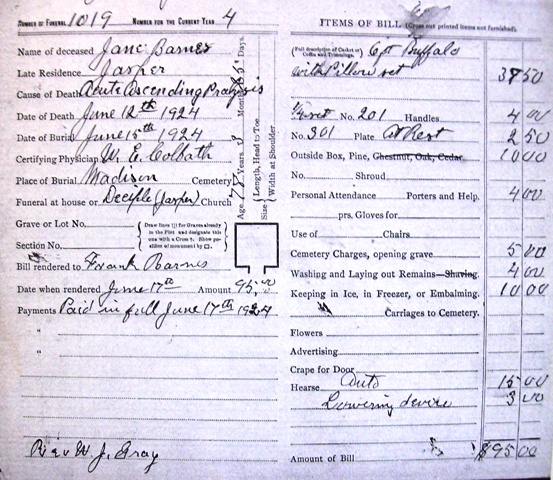 NUMBER OF FUNERAL 1019 NUMBER FOR THE CURRENT YEAR 4
Name of deceased Jane Barnes
Late Residence Jasper
Cause of Death Acute Ascending
Date of Death June 12th 1924
Date of Burial June 15th 1924
Certifying Physician W. E. Colbath
Place of Burial Madison Cemetery
Funeral at house or Deciple (Jasper) Church
Age Years Months Days
Size { Length, Head to Toe
Width at Shoulder
Grave or Lot No.
Section No.
{ Draw lines (|) for Graves already in the Plot and designate this one with a Cross †. Show position of monument by □. }
Bill rendered to Frank Barnes
Date when rendered June 17th Amount 95.00
Payments Paid in full June 17th 1924
"
"
Rev W. J. Gray
ITEMS OF BILL (Cross out printed items not furnished).
(Full description of Casket or Coffin and Trimmings. Buffalo
with Pillow set 50
1/4 set No. 201 Handles 4 00
No. 301 Plate At Rest 2 50
Outside Box, Pine, Chestnut, Oak, Cedar. 10 00
No. Shroud
Personal Attendance Porters and Help. 4 00
prs. Gloves for
Use of Chairs
Cemetery Charges, opening grave 5 00
Washing and Laying out Remains Shaving. 4 00
Keeping in Ice, in Freezer, or Embalming. 10 00
Carriages to Cemetery.
Flowers
Advertising
Crape for Door
Hearse Auto 15 00
Lowering device 3 00
Amount of Bill $95 00